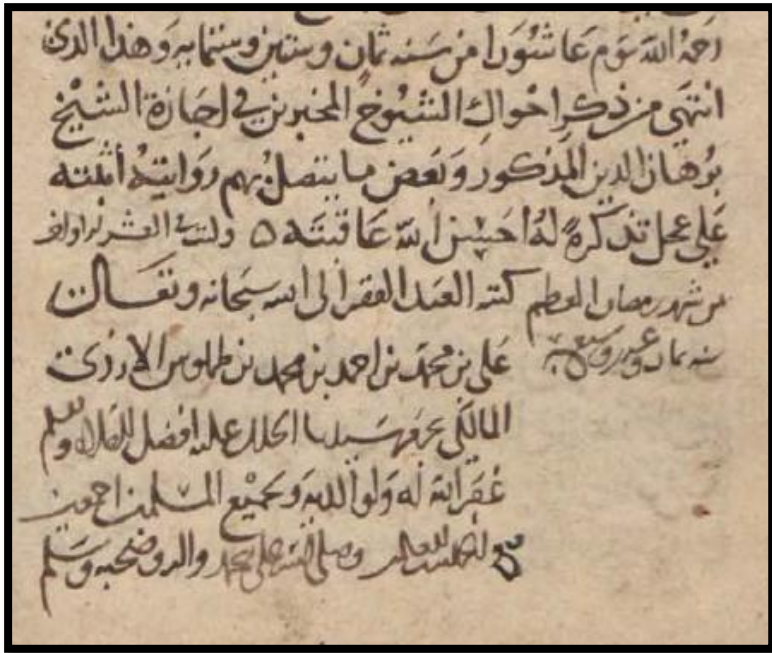 رحمه الله يوم عاشوراء من سنه ثمان وستين وستمايه وهذا الذي
انتهى من ذكر احوال الشيوخ المخبرين في اجازة الشيخ
برهان الدين المذكور وبعض ما يتصل بهم روايته أثبته
على عجل تذكرة له احسن الله عاقبته ٥ وذلك في العشر الاواخر
من شهر رمضان المعظم كتبه العبد الفقير الى الله سبحانه وتعالى
سنه ثمان علي بن محمد بن احمد بن محمد بن طملوس الازدي
المالكي بحرم سيدنا الخليل عليه افضل الصلاة وسلم
غفر الله له ولوالديه ولجميع المسلمين اجمعين
وصلى الله على محمد واله وصحبه وسلم